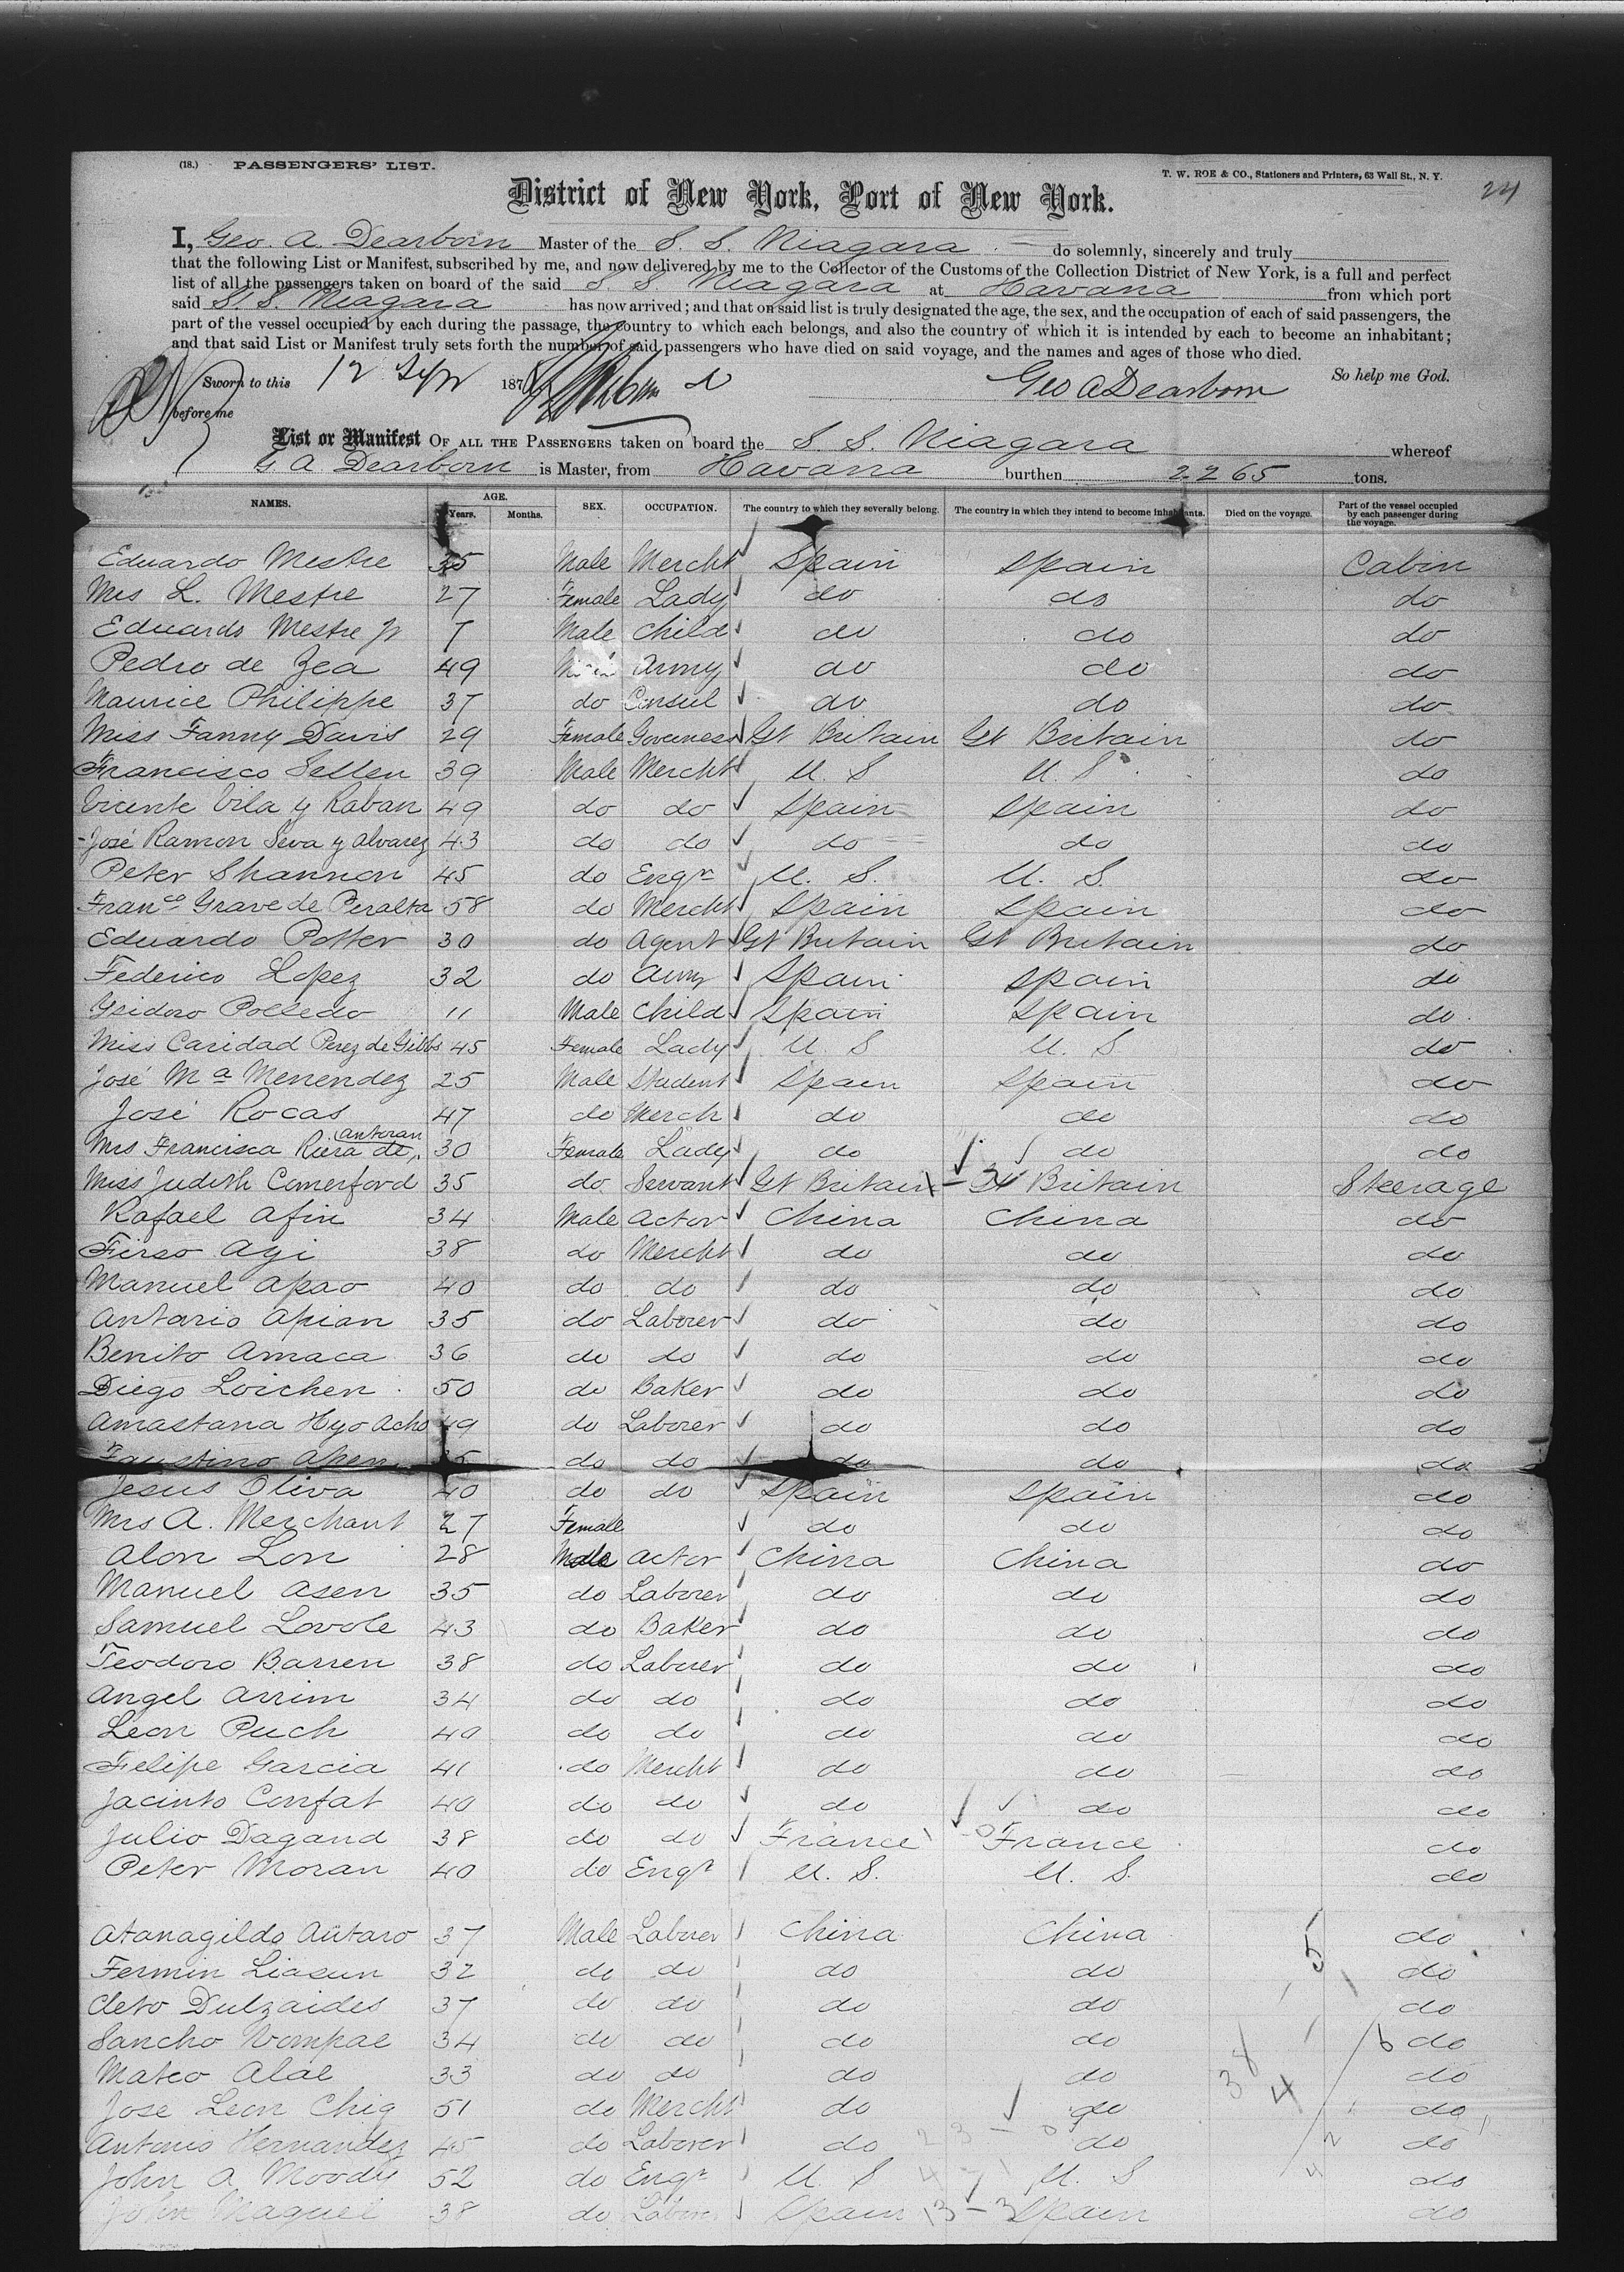 (18.) PASSENGERS' LIST.
T. W. ROE & CO., Stationers and Printers, 63 Wall St., N. Y.
24
District of New York, Port of New York.
I, Geo. A. Dearborn Master of the S. S. Niagara do solemnly, sincerely and truly
that the following List or Manifest, subscribed by me, and now delivered by me to the Collector of the Customs of the Collection District of New York, is a full and perfect
list of all the passengers taken on board of the said S. S. Niagara at Havana from which port
said S. S. Niagara has now arrived; and that on said list is truly designated the age, the sex, and the occupation of each of said passengers, the
part of the vessel occupied by each during the passage, the country to which each belongs, and also the country of which it is intended by each to become an inhabitant;
and that said List or Manifest truly sets forth the number of said passengers who have died on said voyage, and the names and ages of those who died.
Sworn to this 12 187 Geo A Dearborn So help me God.
before me
List or Manifest OF ALL THE PASSENGERS taken on board the S. S. Niagara whereof
G. A Dearborn is Master, from Havana burthen 2265 tons.
NAMES. AGE. Years. Months. SEX. OCCUPATION. The country to which they severally belong. The country in which they intend to become inhabitants. Died on the voyage. Part of the vessel occupied by each passenger during the voyage.
Eduardo Mestre 35 Male Mercht Spain Spain Cabin
Mrs L. Mestre 27 Female Lady do do do
Eduardo Mestre Jr 7 Male Child do do do
Pedro de Zea 49 Army do do do
Maurice Philippe 37 do Consul do do do
Miss Fanny Davis 29 Female Governess Gt Britain Gt Britain do
Francisco Sellen 39 Male Mercht U. S U. S do
Vicente Vila y Raban 49 do do Spain Spain do
José Ramon Seva y Alvarez 43 do do do do do
Peter Shannon 45 do Engr U. S. U. S. do
Franco Grave de Peralta 58 do Mercht Spain Spain do
Eduardo Potter 30 do Agent Gt Britain Gt Britain do
Federico Lopez 32 do Army Spain Spain do
Ysidoro Polledo 11 Male Child Spain Spain do
Miss Caridad Perez de Gibbs 45 Female Lady U S U. S do
José Ma Menendez 25 Male Student Spain Spain do
José Rocas 47 do Merch do do do
Mrs Francisca Riera de Antoran 30 Female Lady do do do
Miss Judith Comerford 35 do Servant Gt Britain Gt Britain Steerage
Rafael Afin 34 Male Actor China China do
Firso Ayi 38 do Mercht do do do
Manuel Apao 40 do do do do do
Antonio Apian 35 do Laborer do do do
Benito Amaca 36 do do do do do
Diego Loichen 50 do Baker do do do
Amastana Hyo Acho 49 do Laborer do do do
Faustino Apen do do do do do
Jesus Oliva 40 do do Spain Spain do
Mrs A. Merchant 27 Female do do do
Alon Lon 28 Male Actor China China do
Manuel Asen 35 do Laborer do do do
Samuel Lovole 43 do Baker do do do
Teodoro Barren 38 do Laborer do do do
Angel Arrim 34 do do do do do
Leon Puch 40 do do do do do
Felipe Garcia 41 do Mercht do do do
Jacinto Confat 40 do do do do do
Julio Dagand 38 do do France France do
Peter Moran 40 do Engr U. S. U. S. do
Atanagildo Autaro 37 Male Laborer China China do
Fermin Liasun 32 do do do do do
Cleto Dulzaides 37 do do do do do
Sancho Wompae 34 do do do do do
Mateo Alae 33 do do do do do
Jose Leon Chig 51 do Mercht do do do
Antonio Hernandez 45 do Laborer do do do
John A Moody 52 do Engr U. S U. S do
John Maguel 38 do Laborer Spain Spain do